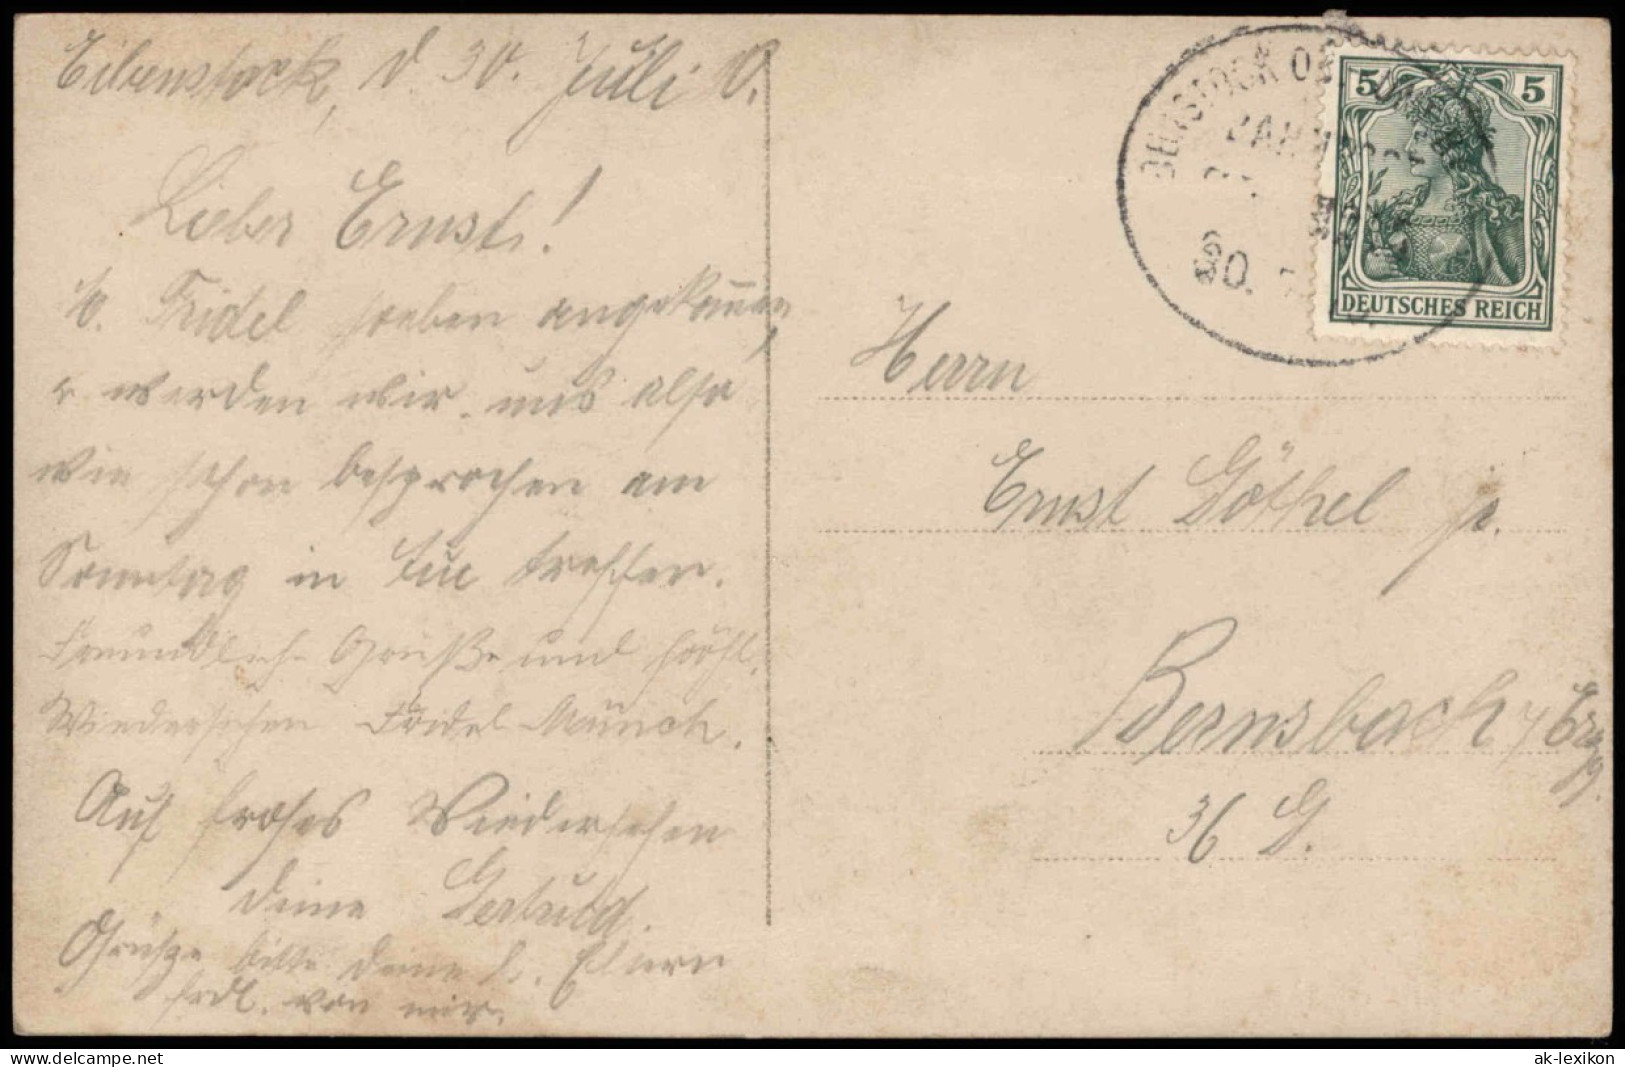 Eibenstock, d 30. Juli
Lieber Ernst!
Fridel soeben angekommen,
werden wir uns also
wie schon besprochen am
Sonntag in Aue treffen.
Freundliche Grüße und hoffl.
Wiedersehen Fridel Münch.
Auf frohes Wiedersehen
deine Gertrud.
Grüße bitte deine l. Eltern
frdl. von mir.
5 5
DEUTSCHES REICH
BAHNPOST
30.
Herrn
Ernst Göthel jr.
Bernsbach i/Erzg.
36 G.
www.delcampe.net
ak-lexikon